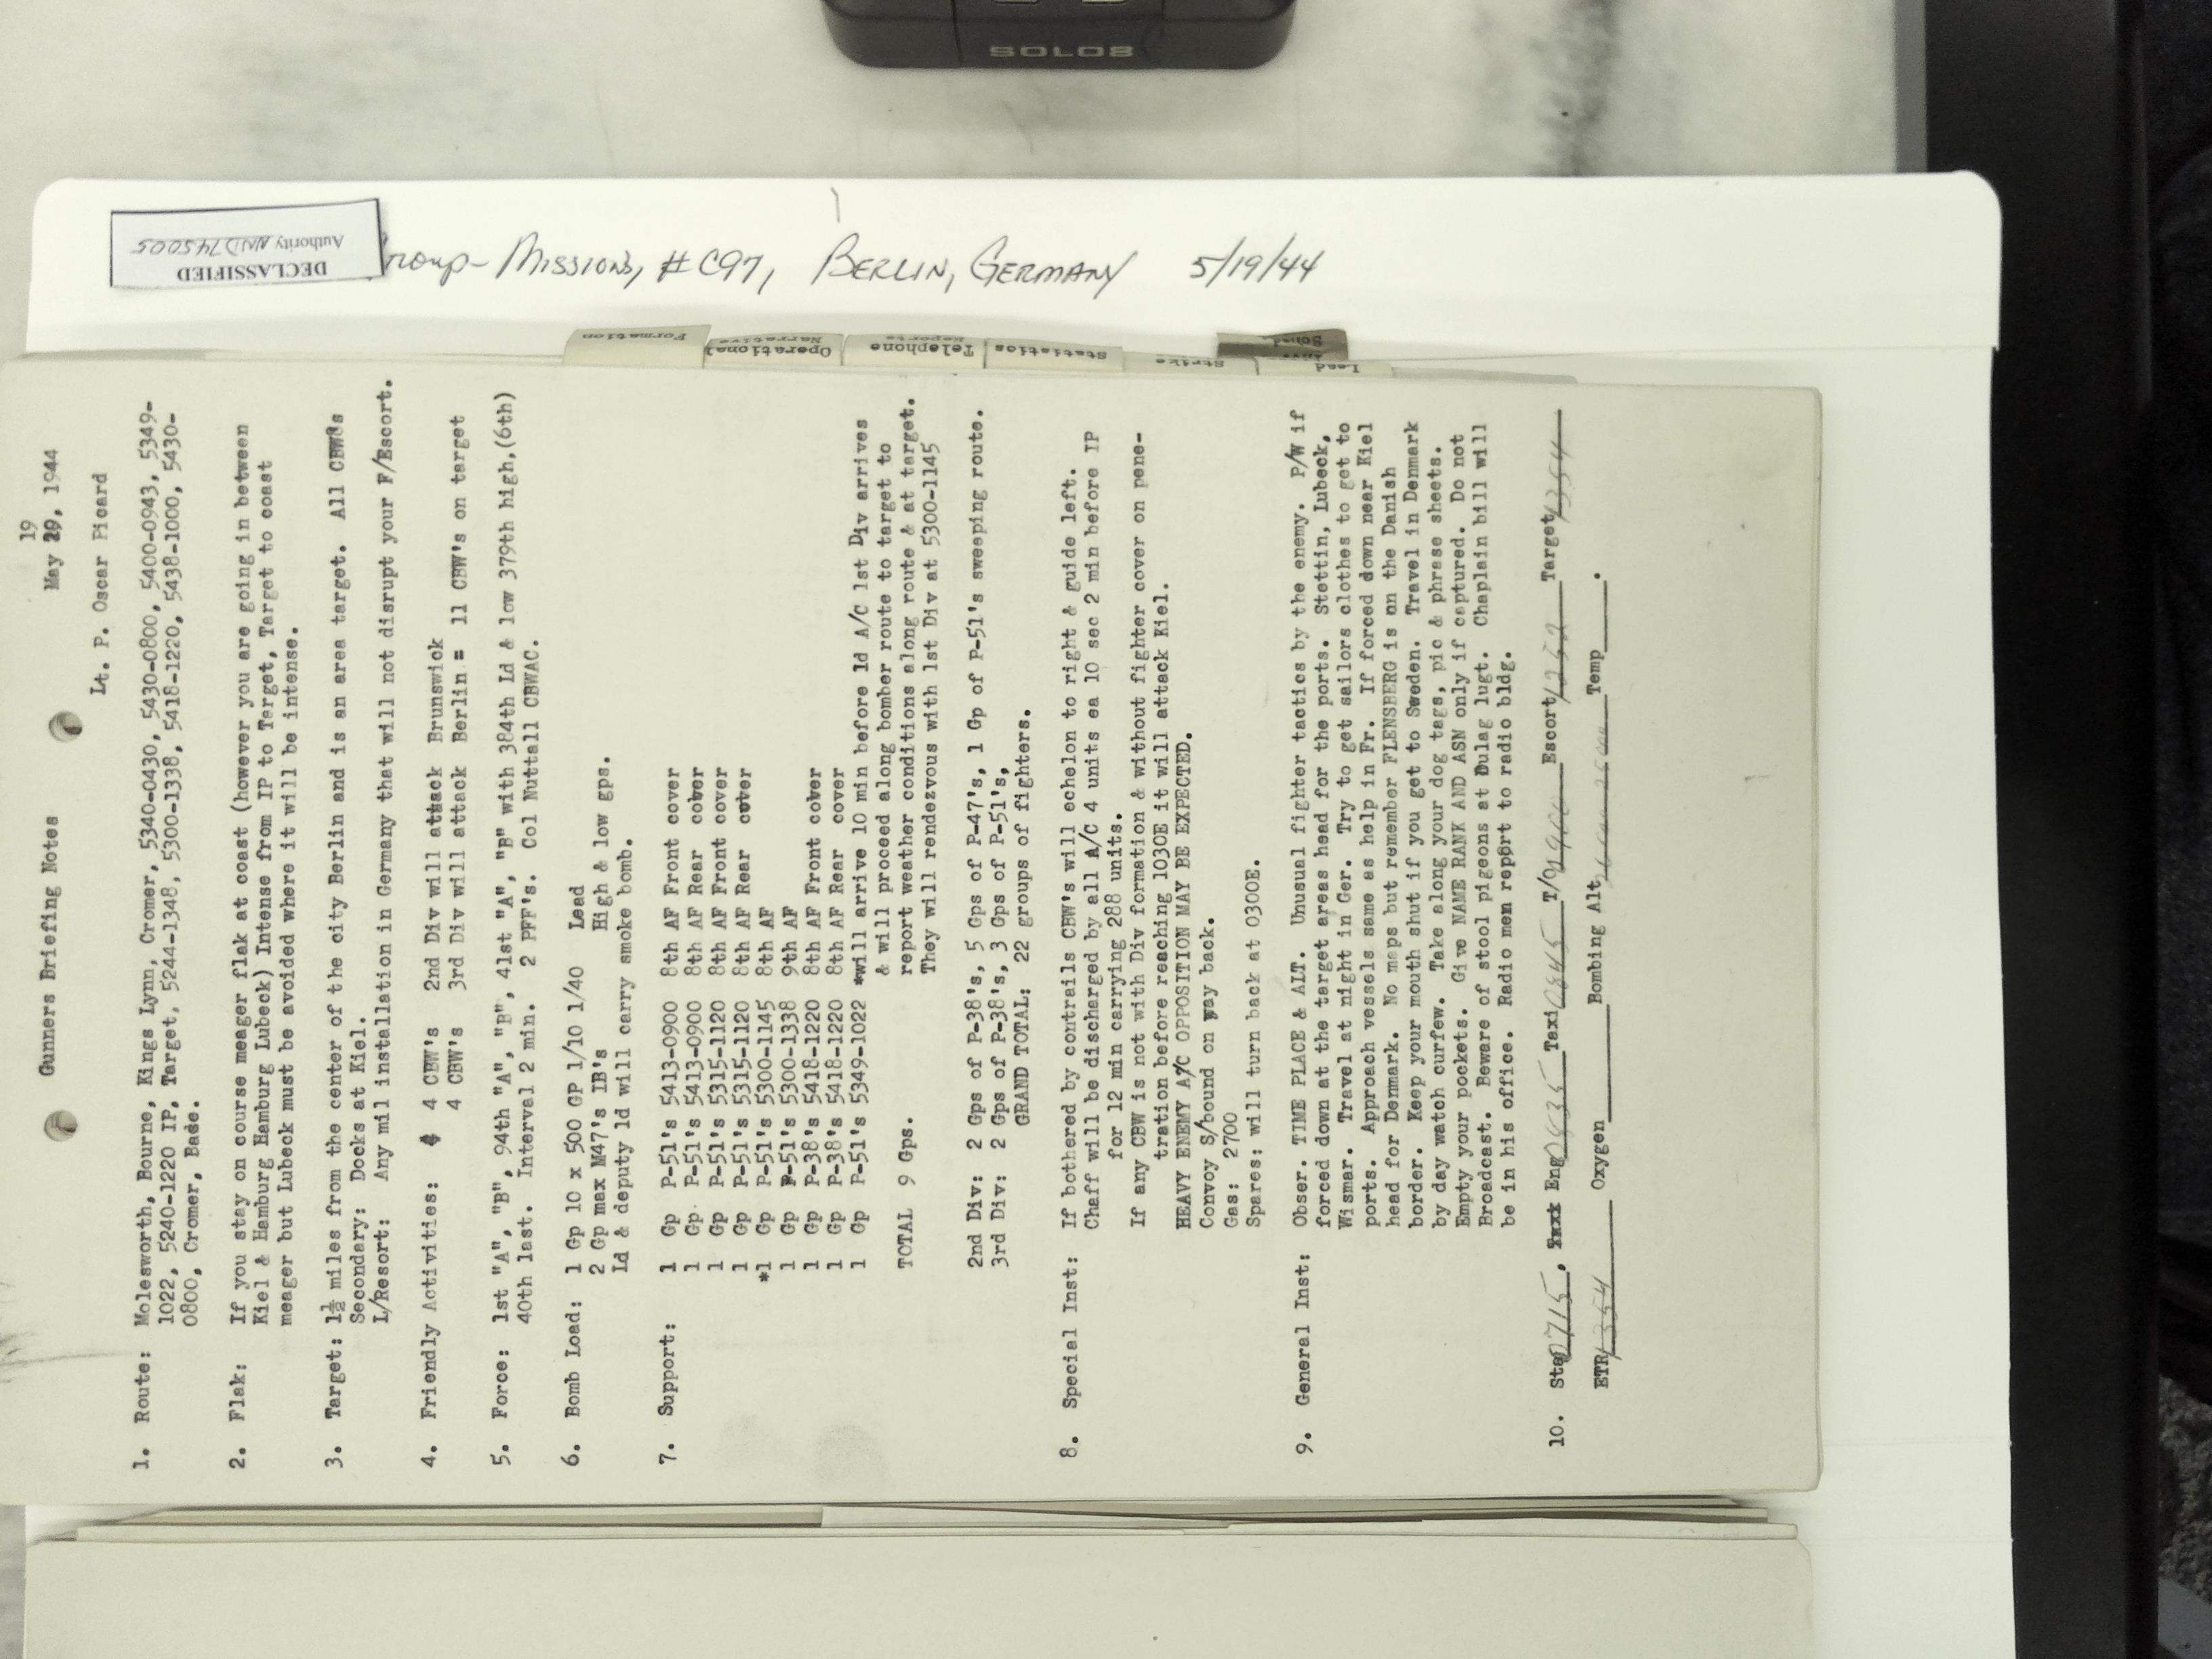 SOLO8
DECLASSIFIED
Authority NND745005
Group- Missions, #C97, Berlin, Germany 5/19/44
Formation
Operational
Narrative
Telephone
Reports
Statistics
Strike
Lead
Gunners Briefing Notes
19
May 29, 1944
Lt. P. Oscar Picard
1. Route: Molesworth, Bourne, Kings Lynn, Cromer, 5340-0430, 5430-0800, 5400-0943, 5349-
1022, 5240-1220 IP, Target, 5244-1348, 5300-1338, 5418-1220, 5438-1000, 5430-
0800, Cromer, Base.
2. Flak: If you stay on course meager flak at coast (however you are going in between
Kiel & Hamburg Hamburg Lubeck) Intense from IP to Target, Target to coast
meager but Lubeck must be avoided where it will be intense.
3. Target: 1½ miles from the center of the city Berlin and is an area target. All CBW's
Secondary: Docks at Kiel.
L/Resort: Any mil installation in Germany that will not disrupt your F/Escort.
4. Friendly Activities: 4 4 CBW's 2nd Div will attack Brunswick
4 CBW's 3rd Div will attack Berlin = 11 CBW's on target
5. Force: 1st "A", "B", 94th "A", "B", 41st "A", "B" with 384th Ld & low 379th high,(6th)
40th last. Interval 2 min. 2 PFF's. Col Nuttall CBWAC.
6. Bomb Load: 1 Gp 10 x 500 GP 1/10 1/40 Lead
2 Gp max M47's IB's High & low gps.
Ld & deputy ld will carry smoke bomb.
7. Support: 1 Gp P-51's 5413-0900 8th AF Front cover
1 Gp P-51's 5413-0900 8th AF Rear cover
1 Gp P-51's 5315-1120 8th AF Front cover
1 Gp P-51's 5315-1120 8th AF Rear cover
*1 Gp P-51's 5300-1145 8th AF
1 Gp P-51's 5300-1338 9th AF
1 Gp P-38's 5418-1220 8th AF Front cover
1 Gp P-38's 5418-1220 8th AF Rear cover
1 Gp P-51's 5349-1022 *will arrive 10 min before ld A/C 1st Div arrives
& will proceed along bomber route to target to
TOTAL 9 Gps. report weather conditions along route & at target.
They will rendezvous with 1st Div at 5300-1145
2nd Div: 2 Gps of P-38's, 5 Gps of P-47's, 1 Gp of P-51's sweeping route.
3rd Div: 2 Gps of P-38's, 3 Gps of P-51's,
GRAND TOTAL: 22 groups of fighters.
8. Special Inst: If bothered by contrails CBW's will echelon to right & guide left.
Chaff will be discharged by all A/C 4 units ea 10 sec 2 min before IP
for 12 min carrying 288 units.
If any CBW is not with Div formation & without fighter cover on pene-
tration before reaching 1030E it will attack Kiel.
HEAVY ENEMY A/C OPPOSITION MAY BE EXPECTED.
Convoy S/bound on way back.
Gas: 2700
Spares: will turn back at 0300E.
9. General Inst: Obser. TIME PLACE & ALT. Unusual fighter tactics by the enemy. P/W if
forced down at the target areas head for the ports. Stettin, Lubeck,
Wismar. Travel at night in Ger. Try to get sailors clothes to get to
ports. Approach vessels same as help in Fr. If forced down near Kiel
head for Denmark. No maps but remember FLENSBERG is on the Danish
border. Keep your mouth shut if you get to Sweden. Travel in Denmark
by day watch curfew. Take along your dog tags, pic & phrase sheets.
Empty your pockets. Give NAME RANK AND ASN only if captured. Do not
Broadcast. Beware of stool pigeons at Dulag lugt. Chaplain bill will
be in his office. Radio men report to radio bldg.
10. Sta 0715, Eng 0835 Taxi 0845 T/O 0900 Escort 1252 Target 1354
ETR 1354 Oxygen Bombing Alt Temp .